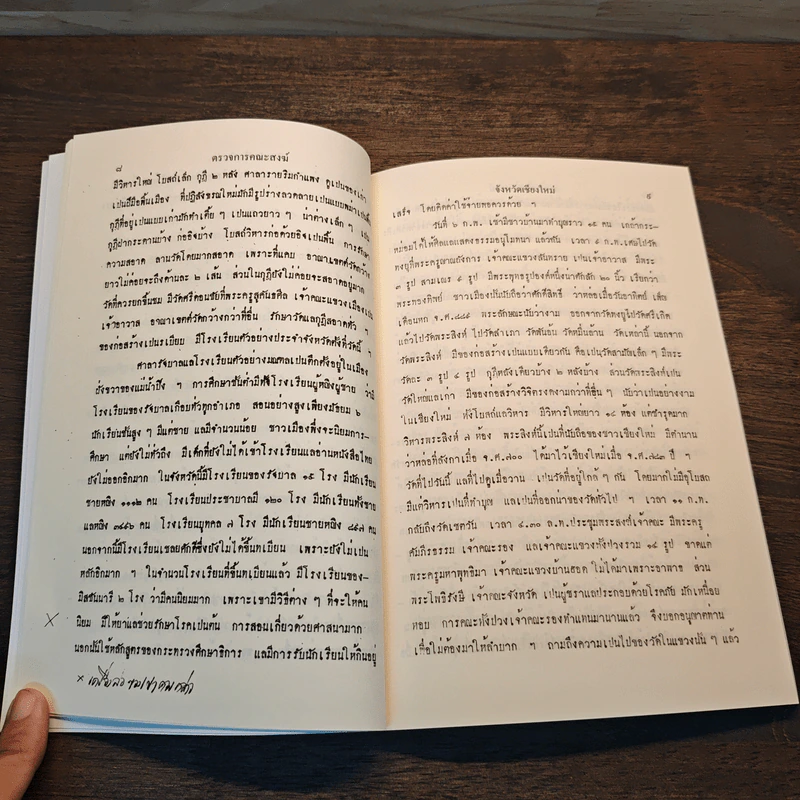 ๘ ตรวจการคณะสงฆ์
มีวิหารใหญ่ โบสถ์เล็ก กุฏิ ๒ หลัง ศาลารายริมกำแพง ดูเปนของเก่า
เปนฝีมือพื้นเมือง ที่ปฏิสังขรณ์ใหม่มักมีรูปร่างลวดลายเปนแบบพม่า
กุฏิที่อยู่เปนแบบเก่ามักทำเตี้ย ๆ เปนแถวยาว ๆ น่าต่างเล็ก ๆ
กุฏิฝากระดานบ้าง ก่ออิฐบ้าง โบสถ์วิหารก่อด้วยอิฐเปนพื้น การรักษา
ความสอาด ลานวัดโดยมากสอาด เพราะที่แคบ อาณาเขตร์วัดกว้าง
ยาวไม่ค่อยจะถึงด้านละ ๒ เส้น ส่วนในกุฏิยังไม่ค่อยจะสอาดอยู่มาก
วัดที่ควรยกขึ้นชม มีวัดศรีดอนชัยที่พระครูสุคันธศีล เจ้าคณะแขวงเมืองเปน
เจ้าอาวาส อาณาเขตร์วัดกว้างกว่าที่อื่น รักษาวัดแลกุฏิสอาดทั่ว ๆ
ของก่อสร้างเปนระเบียบ มีโรงเรียนตัวอย่างประจำจังหวัดตั้งที่วัดนี้ ๆ
ศาลารัฐบาลแลโรงเรียนตัวอย่างมณฑลเปนตึกตั้งอยู่ในเมือง
ฝั่งขวาของแม่น้ำปิง ๆ การศึกษาชั้นต่ำมีทั้งโรงเรียนผู้หญิงผู้ชาย ว่ามี
โรงเรียนของรัฐบาลเกือบทั่วทุกอำเภอ สอนอย่างสูงเพียงมัธยม ๒
นักเรียนชั้นสูง ๆ มีแต่ชาย แลมีจำนวนน้อย ชาวเมืองพึ่งจะนิยมการ-
ศึกษา แต่ยังไม่ทั่วถึง มีเด็กที่ยังไม่ได้เข้าโรงเรียนแลอ่านหนังสือไทย
ยังไม่ออกอีกมาก ในจังหวัดนี้มีโรงเรียนของรัฐบาล ๑๕ โรง มีนักเรียน
ชายหญิง ๑๑๑๒ คน โรงเรียนประชาบาลมี ๑๒๐ โรง มีนักเรียนทั้งชาย
แลหญิง ๓๔๕๖ คน โรงเรียนบุคคล ๗ โรง มีนักเรียนชายหญิง ๔๕๗ คน
นอกจากนี้มีโรงเรียนเชลยศักดิ์ซึ่งยังไม่ได้ขึ้นทเบียน เพราะยังไม่เปน
หลักอีกมาก ๆ ในจำนวนโรงเรียนที่ขึ้นทเบียนแล้ว มีโรงเรียนของ-
มิสชันนารี ๒ โรง ว่ามีคนนิยมมาก เพราะเขามีวิธีต่าง ๆ ที่จะให้คน
× นิยม มีให้ยาแลช่วยรักษาโรคเปนต้น การสอนเกี่ยวด้วยศาสนามาก
นอกนั้นใช้หลักสูตรของกระทรวงศึกษาธิการ แลมีการรับนักเรียนให้กินอยู่
×
จังหวัดเชียงใหม่ ๙
เสร็จ โดยคิดค่าใช้จ่ายพอควรด้วย ๆ
วันที่ ๖ ก.พ. เช้ามีชาวบ้านมาทำบุญราว ๑๕ คน เกล้ากระ-
หม่อมได้ให้ศีลแลแสดงธรรมอนุโมทนา แล้วกัน เวลา ๙ ก.ท. เดินไปวัด
ทงยูที่พระครูญาณถังการ เจ้าคณะแขวงสันทราย เปนเจ้าอาวาส มีพระ
๓ รูป สามเณร ๙ รูป มีพระพุทธรูปองค์หนึ่งน่าตักสัก ๒๐ นิ้ว เรียกว่า
พระทองทิพย์ ชาวเมืองนับถือว่าศักดิ์สิทธิ์ ว่าหล่อเมื่อวันอาทิตย์ เส็ด
เดือนหก จ.ศ.๘๘๕ พระลักษณะนับว่างาม ออกจากวัดทงยูไปวัดศรีเกิด
แล้วไปวัดพระสิงห์ ไปวัดลำเภา วัดพันอ้น วัดหมื่นล้าน วัดเหล่านี้ นอกจาก
วัดพระสิงห์ มีของก่อสร้างเปนแบบเดียวกัน คือเปนวัดสามัญเล็ก ๆ มีพระ
วัดละ ๓ รูป ๔ รูป กุฏิหลังเดียวบ้าง ๒ หลังบ้าง ส่วนวัดพระสิงห์เปน
วัดใหญ่แลเก่า มีของก่อสร้างวิจิตรงดงามกว่าที่อื่น ๆ นับว่าเปนอย่างงาม
ในเชียงใหม่ ทั้งโบสถ์แลวิหาร มีวิหารใหญ่ยาว ๑๔ ห้อง แต่ชำรุดมาก
วิหารพระสิงห์ ๗ ห้อง พระสิงห์นี้เปนที่นับถือของชาวเชียงใหม่ มีตำนาน
ว่าหล่อที่ลังกาเมื่อ จ.ศ.๗๐๐ ได้มาไว้เชียงใหม่เมื่อ จ.ศ.๗๔๓ ปี ๆ
วัดที่ไปวันนี้ แลที่ไปดูเมื่อวาน เปนวัดที่อยู่ใกล้ ๆ กัน โดยมากไม่มีอุโบสถ
มีแต่วิหารเปนที่ทำบุญ แลเปนที่ออกน่าของวัดทั่วไป ๆ เวลา ๑๑ ก.ท.
กลับถึงวัดเชตวัน เวลา ๔.๓๐ ล.ท. ประชุมพระสงฆ์ที่เจ้าคณะ มีพระครู
คัมภีรธรรม เจ้าคณะรอง แลเจ้าคณะแขวงทั้งปวงรวม ๑๔ รูป ขาดแต่
พระครูมหาพุทธิมา เจ้าคณะแขวงบ้านฮอด ไม่ได้มาเพราะอาพาธ ส่วน
พระโพธิรังษี เจ้าคณะจังหวัด เปนผู้ชราแลประกอบด้วยโรคภัย มักเหนื่อย
หอบ การคณะทั้งปวงเจ้าคณะรองทำแทนมานานแล้ว จึงบอกอนุญาตท่าน
เพื่อไม่ต้องมาให้ลำบาก ๆ ถามถึงความเปนไปของวัดในแขวงนั้น ๆ แล้ว